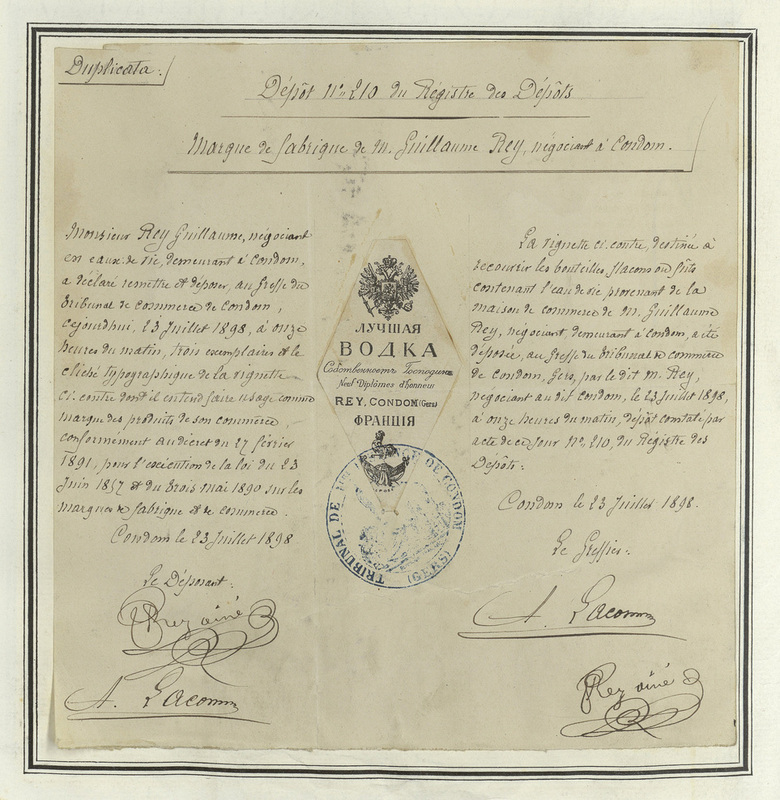 Duplicata:
Dépôt N° 210 du Régistre des Dépôts
Marque de fabrique de M. Guillaume Rey, négociant à Condom.
Monsieur Rey Guillaume, négociant
en eaux-de-vie, demeurant à Condom,
a déclaré remettre et déposer, au Greffe du
Tribunal de commerce de Condom,
cejourdhui, 23 Juillet 1898, à onze
heures du matin, trois exemplaires et le
cliché typographique de la vignette
ci-contre dont il entend faire usage comme
marque des produits de son commerce,
conformément au décret du 27 février
1891, pour l'exécution de la loi du 23
Juin 1857 et du trois Mai 1890 sur les
marques de fabrique et de commerce.
Condom le 23 Juillet 1898
Le Déposant:
Rey ainé
A. Lacomme
ЛУЧШАЯ
ВОДКА
Neuf Diplômes d'honneur
REY, CONDOM (Gers)
ФРАНЦІЯ
TRIBUNAL DE COMMERCE DE CONDOM
(GERS)
La vignette ci-contre, destinée à
recouvrir les bouteilles flacons ou fûts
contenant l'eau de vie provenant de la
maison de commerce de M. Guillaume
Rey, négociant, demeurant à Condom, a été
déposée, au Greffe du Tribunal de commerce
de Condom, Gers, par le dit M. Rey,
négociant au dit Condom, le 23 Juillet 1898,
à onze heures du matin, dépôt constaté par
acte de ce jour N° 210, du Régistre des
Dépôts:
Condom le 23 Juillet 1898.
Le Greffier:
A. Lacomme
Rey ainé